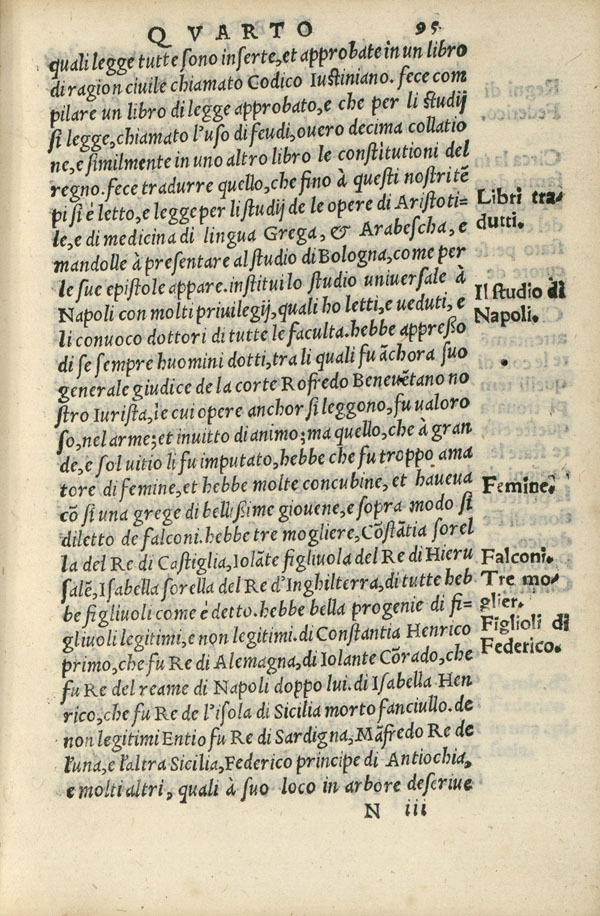 QVARTO 95
quali legge tutte sono inserte, et approbate in un libro
di ragion ciuile chiamato Codico Iustiniano. fece com
pilare un libro di legge approbato, e che per li studij
si legge, chiamato l'uso di feudi, ouero decima collatio
ne, e similmente in uno altro libro le constitutioni del
regno. fece tradurre quello, che fino à questi nostri tē
pi si é letto, e legge per li studij de le opere di Aristoti=
le, e di medicina di lingua Grega, & Arabescha, e
mandolle à presentare al studio di Bologna, come per
le sue epistole appare. institui lo studio uniuersale à
Napoli con molti priuilegij, quali ho letti, e ueduti, e
li conuoco dottori di tutte le faculta. hebbe appresso
di se sempre huomini dotti, tra li quali fu āchora suo
generale giudice de la corte Rofredo Beneuētano no
stro Iurista, le cui opere anchor si leggono, fu ualoro
so, nel arme; et inuitto di animo; ma quello, che à gran
de, e sol uitio li fu imputato, hebbe che fu troppo ama
tore di femine, et hebbe molte concubine, et haueua
cō si una grege di bellissime giouene, e sopra modo si
diletto de falconi. hebbe tre mogliere, Cōstātia sorel
la del Re di Castiglia, Iolāte figliuola del Re di Hieru
salē, Isabella sorella del Re d'Inghilterra, di tutte heb
be figliuoli come é detto. hebbe bella progenie di fi=
gliuoli legitimi, e non legitimi. di Constantia Henrico
primo, che fu Re di Alemagna, di Iolante Cōrado, che
fu Re del reame di Napoli doppo lui. di Isabella Hen
rico, che fu Re de l'isola di Sicilia morto fanciullo. de
non legitimi Entio fu Re di Sardigna, Māfredo Re de
l'una, e l'altra Sicilia, Federico principe di Antiochia,
e molti altri, quali à suo loco in arbore descriue
N iii
Libri tra=
dutti.
Il studio di
Napoli.
Femine.
Falconi.
Tre mo=
glier.
Figlioli di
Federico.